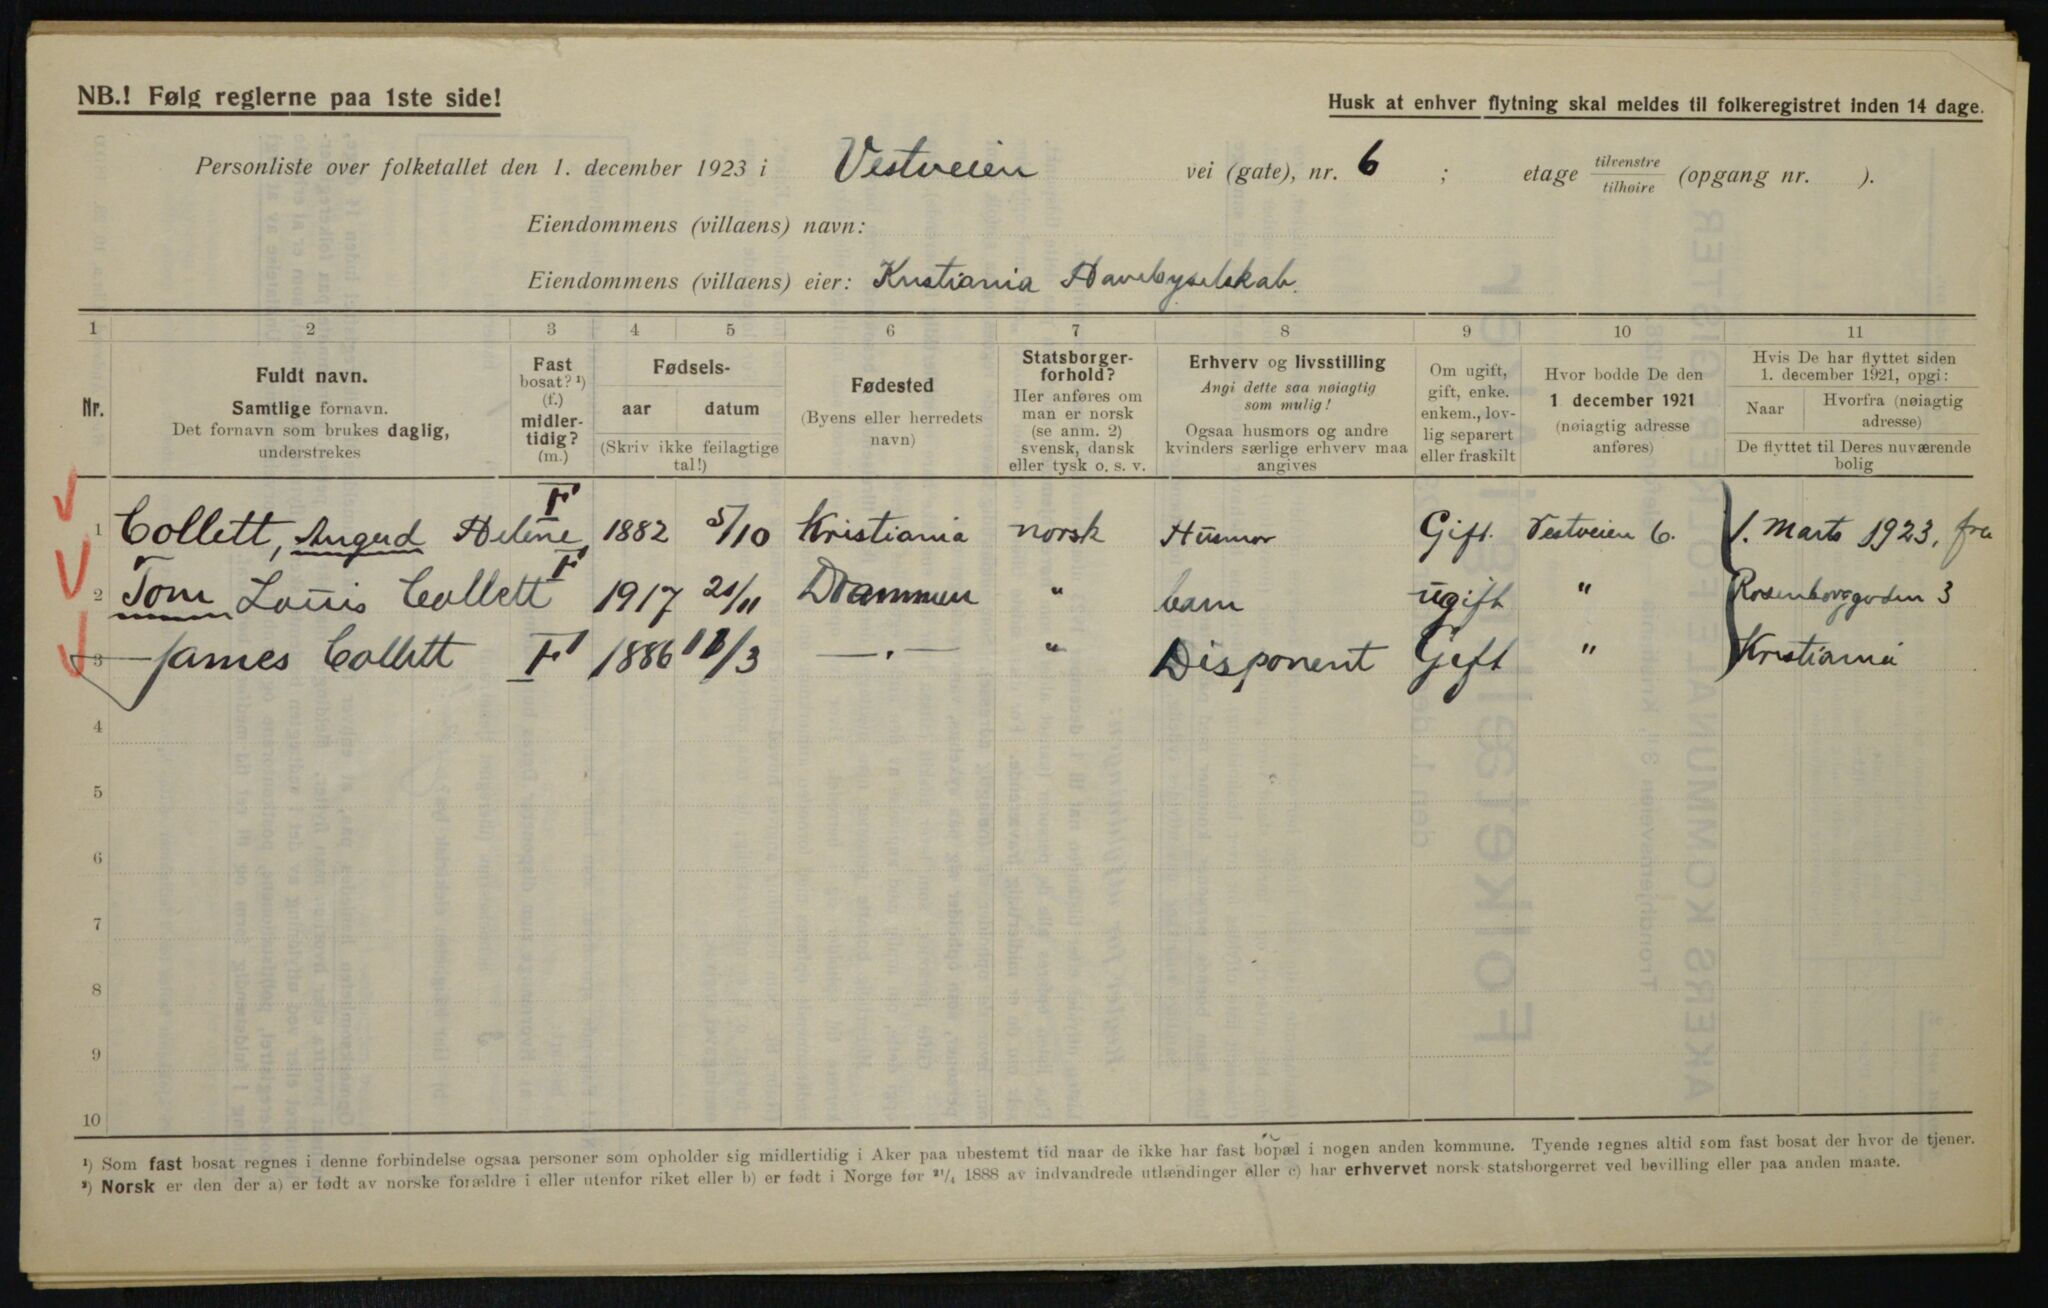 NB.! Følg reglerne paa 1ste side!
Husk at enhver flytning skal meldes til folkeregistret inden 14 dage.
Personliste over folketallet den 1. december 1923 i Vestveien vei (gate), nr. 6 ; etage tilvenstre / tilhøire (opgang nr. ).
Eiendommens (villaens) navn:
Eiendommens (villaens) eier: Kristiania Havebyselskab.
1 2 3 4 5 6 7 8 9 10 11
Nr.
Fuldt navn.
Samtlige fornavn.
Det fornavn som brukes daglig,
understrekes
Fast
bosat? ¹)
(f.)
midler-
tidig?
(m.)
Fødsels-
aar datum
(Skriv ikke feilagtige
tal!)
Fødested
(Byens eller herredets
navn)
Statsborger-
forhold?
Her anføres om
man er norsk
(se anm. 2)
svensk, dansk
eller tysk o. s. v.
Erhverv og livsstilling
Angi dette saa nøiagtig
som mulig!
Ogsaa husmors og andre
kvinders særlige erhverv maa
angives
Om ugift,
gift, enke.
enkem., lov-
lig separert
eller fraskilt
Hvor bodde De den
1 december 1921
(nøiagtig adresse
anføres)
Hvis De har flyttet siden
1. december 1921, opgi:
Naar
Hvorfra (nøiagtig
adresse)
De flyttet til Deres nuværende
bolig
1 Collett, Helene F 1882 5/10 Kristiania norsk Husmor Gift. Vestveien 6. 1. Marts 1923, fra
2 Tom Louis Collett F 1917 21/11 Drammen " barn ugift " 3
3 James Collett F 1886 /3 —"— " Disponent Gift " Kristiania
4
5
6
7
8
9
10
¹) Som fast bosat regnes i denne forbindelse ogsaa personer som opholder sig midlertidig i Aker paa ubestemt tid naar de ikke har fast bopæl i nogen anden kommune. Tyende regnes altid som fast bosat der hvor de tjener.
²) Norsk er den der a) er født av norske forældre i eller utenfor riket eller b) er født i Norge før ²¹/₄ 1888 av indvandrede utlændinger eller c) har erhvervet norsk statsborgerret ved bevilling eller paa anden maate.